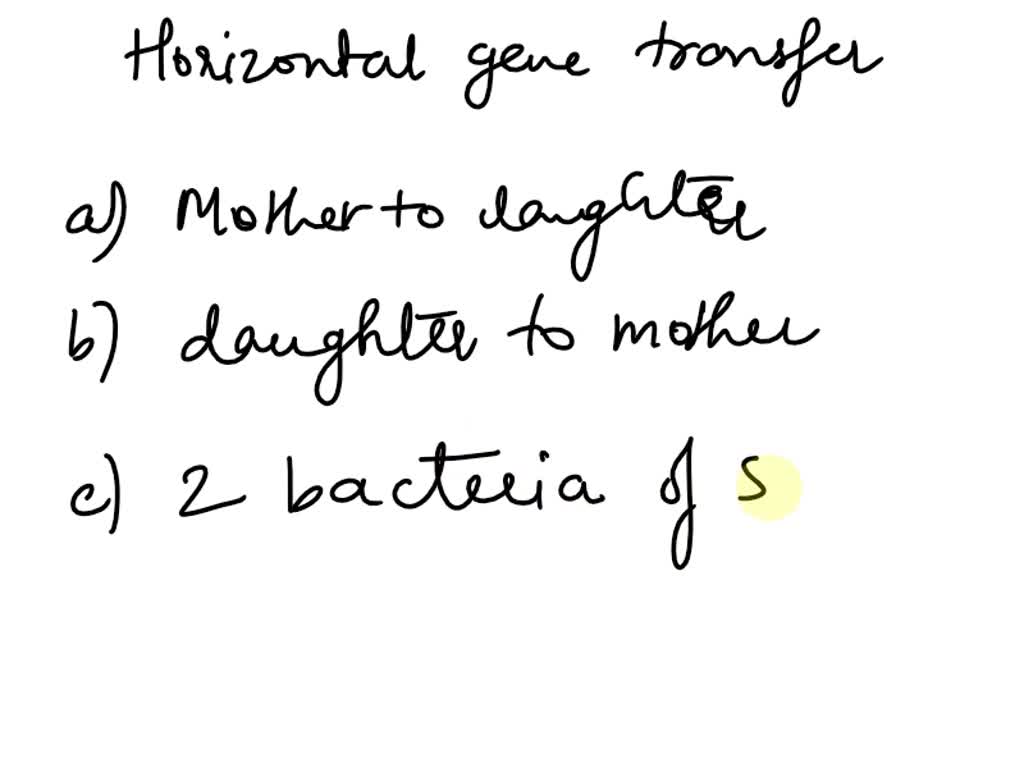 Horizontal gene transfer
a) Mother to daughter
b) daughter to mother
c) 2 bacteria of s